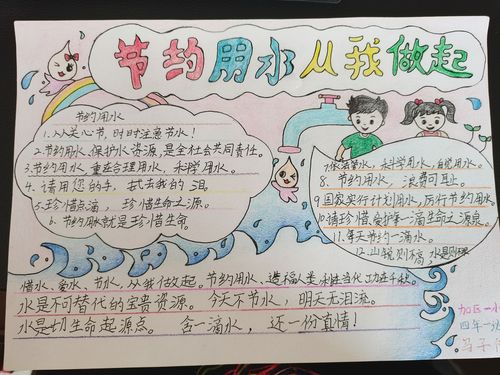 节约用水从我做起
节约用水
1.人人关心节,时时注意节水!
2.节约用水、保护水资源,是全社会共同责任。
3.节约用水,重在合理用水,科学用水。
4.请用您的手,拭去我的泪,
5.珍惜点滴,珍惜生命之源。
6.节约用水就是珍惜生命。
科学用水,自觉用水。
8.节约用水,浪费可耻。
9国家实行计划用水,厉行节约用水。
10.请珍惜、爱护每一滴生命之源泉。
11.每天节约一滴水。
12.山锐则不高,水
惜水、爱水、节水,从我做起。节约用水、造福人类,利在当代,功在千秋。
水是不可替代的宝贵资源。今天不节水,明天无泪流。
水是切生命起源点。含一滴水,还一份真情!
四年一班